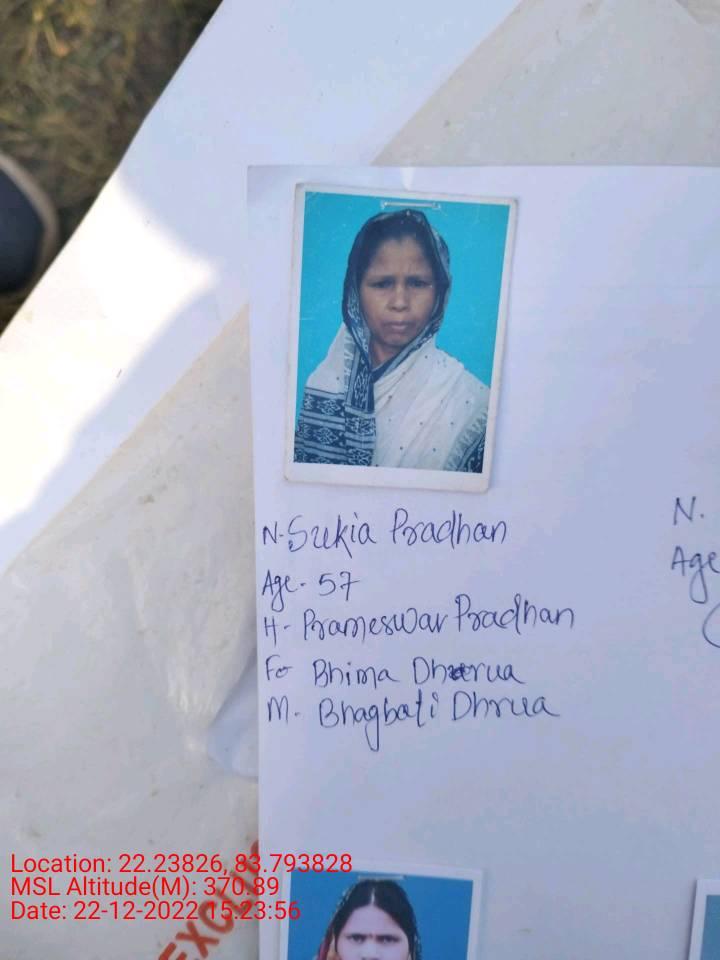 N- Sukia Pradhan
Age- 57
H- Prameswar Pradhan
F- Bhima Dharua
M- Bhagbati Dhrua
N.
Age
Location: 22.23826, 83.793828
MSL Altitude(M): 370.89
Date: 22-12-2022 15:23:56